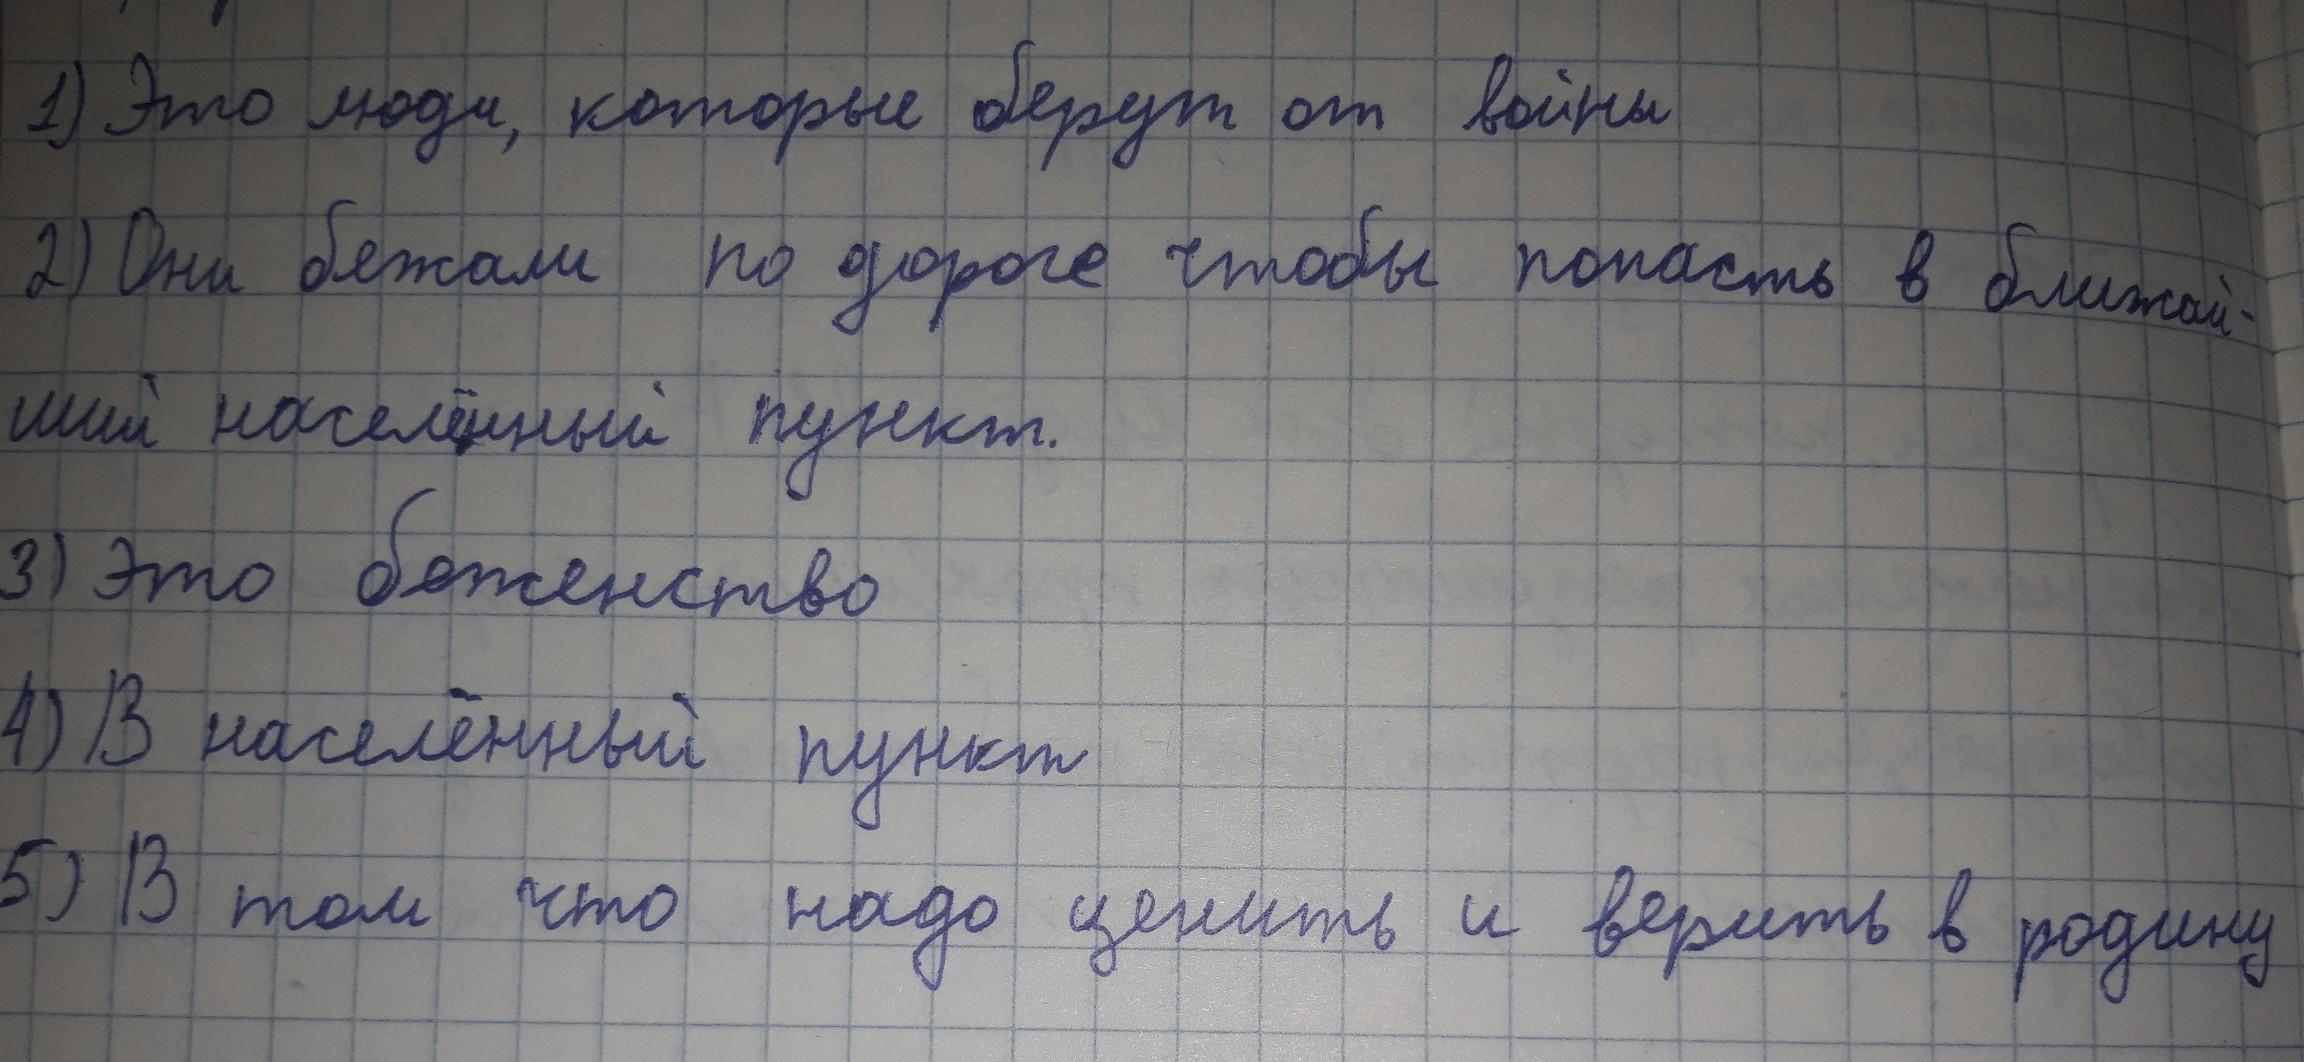 1) Это люди, которые берут от войны
2) Они бежали по дороге чтобы попасть в ближай-
ший населённый пункт.
3) Это беженство
4) В населённый пункт
5) В том что надо ценить и верить в родину